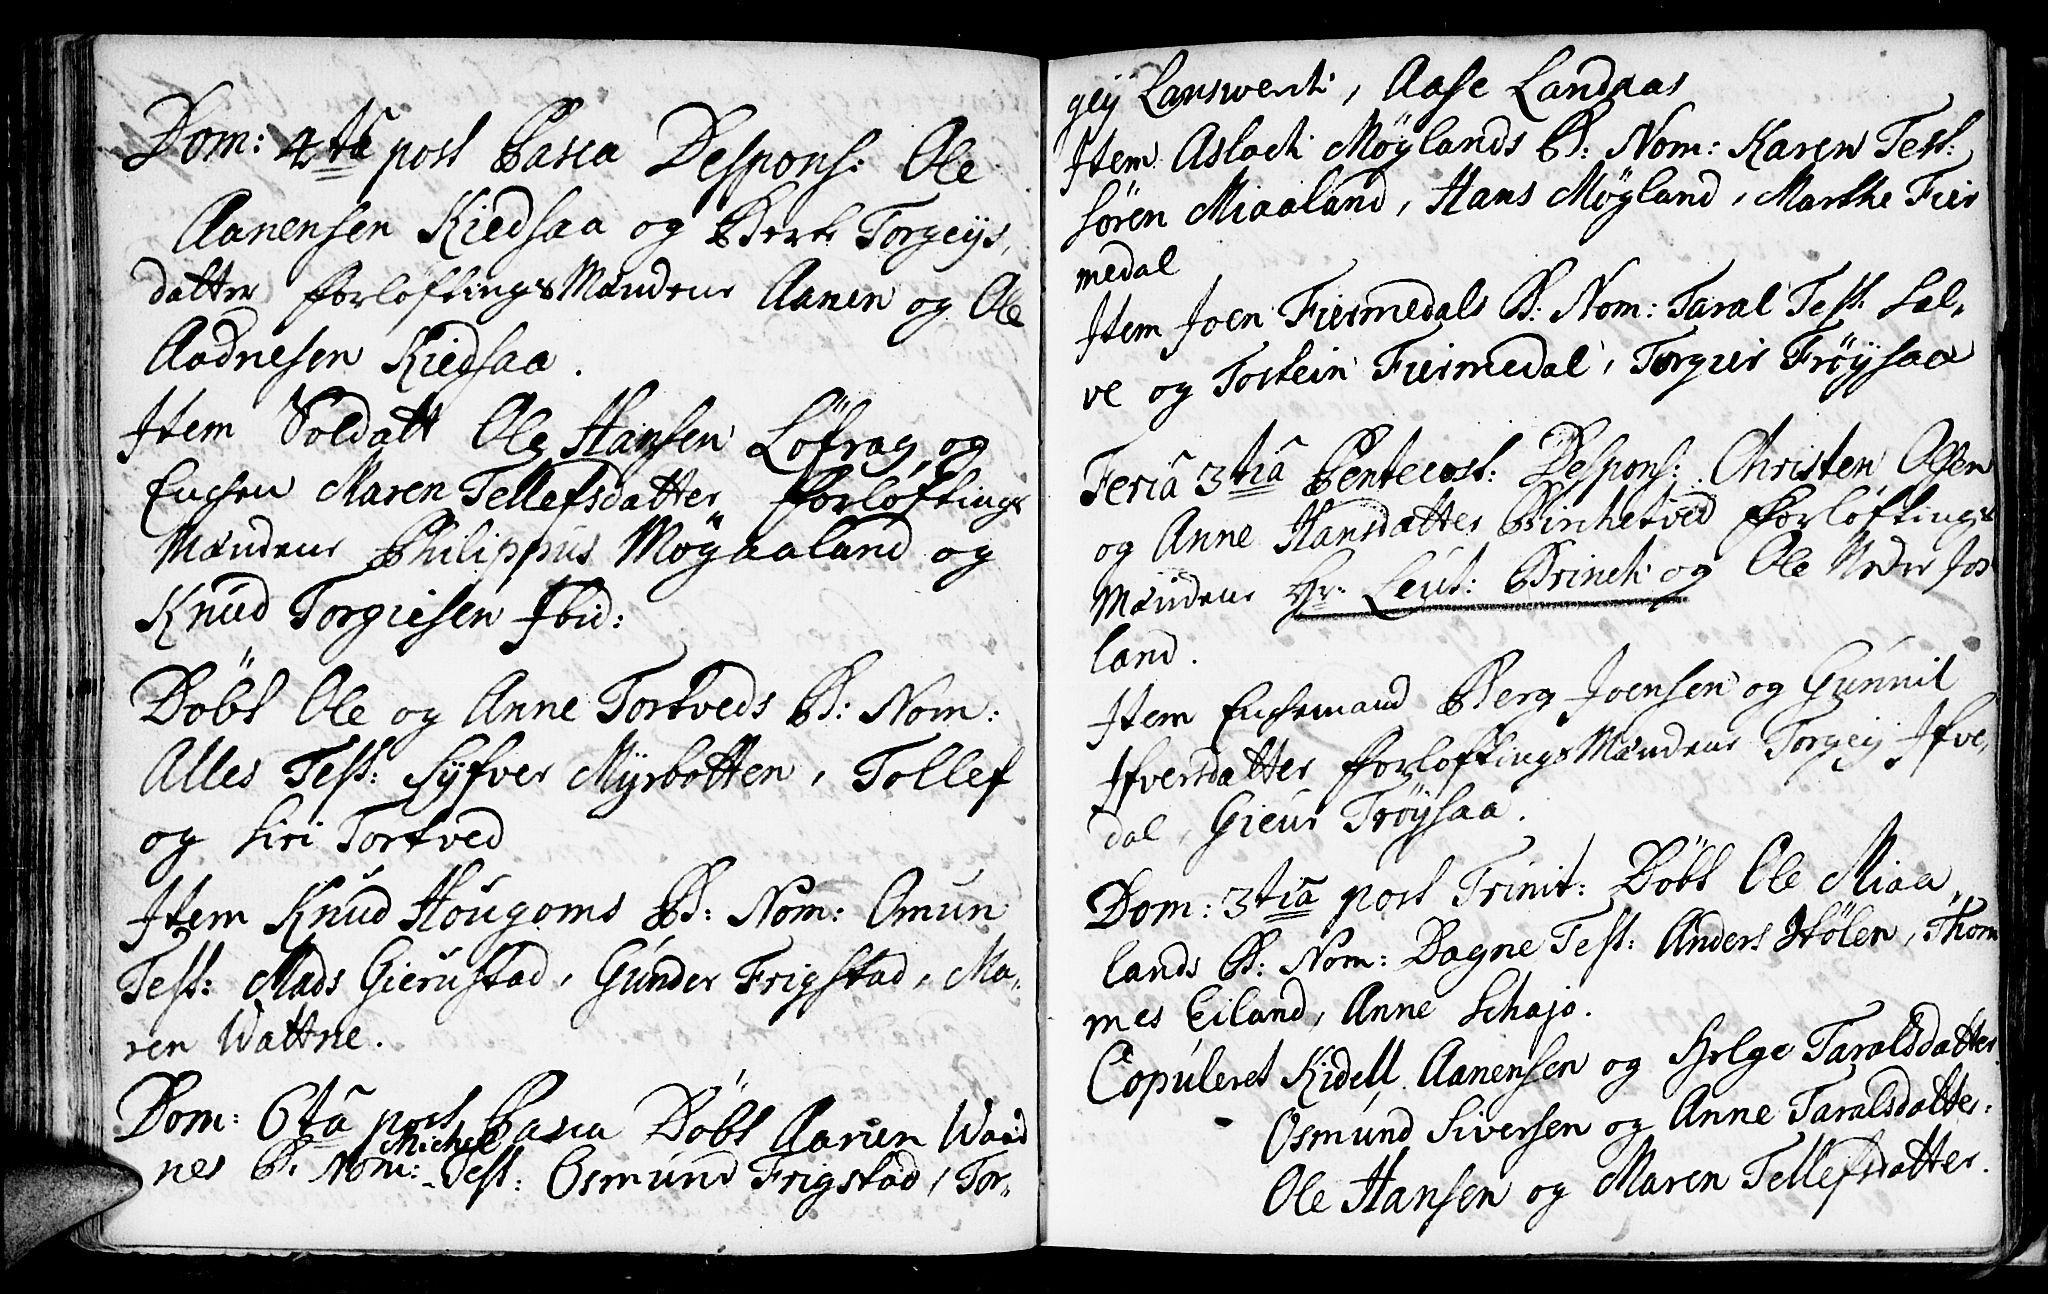 Dom: 4ta post Pasca Despons: Ole
Aanensen Kiedsaa og Berte Torgeÿs,
datter forlöftings Mændene Aanen og Ole
Aadnesen Kiedsaa.
Item Soldatt Ole Hansen Löfrag, og
Enchen Maren Tellefsdatter forlöftings
Mændene Philippus Mögaaland og
Knud Torgiesen Ibid:
Döbt Ole og Anne Tortveds B: Nom:
Alles Test: Syfver Myrbotten, Tollef
og Siri Tortved
Item Knud Hougoms B: Nom: Omun
Test: Mads Gierustad, Gunder Frigstad, Ma,
ren Wattne.
Dom: 6ta post Pasca Döbt Aanen Waad
nes B: Nom: Michel Test: Osmund Frigstad, Tor-
geÿ Lanswerk, Aase Landaas
Item Aslach Møglands B: Nom: Karen Test:
Sören Miaaland, Hans Møgland, Marthe Fier
medal
Item Joen Fiermedals B: Nom: Taral Test. Sal,
ve og Tostein Fiermedal, Torgier Frøysaa
Feria 3tia Pentecost: Despons: Christen Olsen
og Anne Hansdatter Birketved forlöftings
Mændene Hr. Leut: Brinck og Ole Neder Jos
land.
Item Enchemand Berg Joensen og Gunnil
Ifversdatter forlöftings Mændene Torgeÿ Ifve,
dal, Gieur Frøysaa.
Dom: 3tia post Trinit: Döbt Ole Miaa,
lands B: Nom: Dagne Test: Anders Stölen, Thom
mes Eiland, Anne Schajo.
Copuleret Kidell Aanensen og Helge Taralsdatter
Osmund Siversen og Anne Taralsdatter.
Ole Hansen og Maren Tellefsdatter.